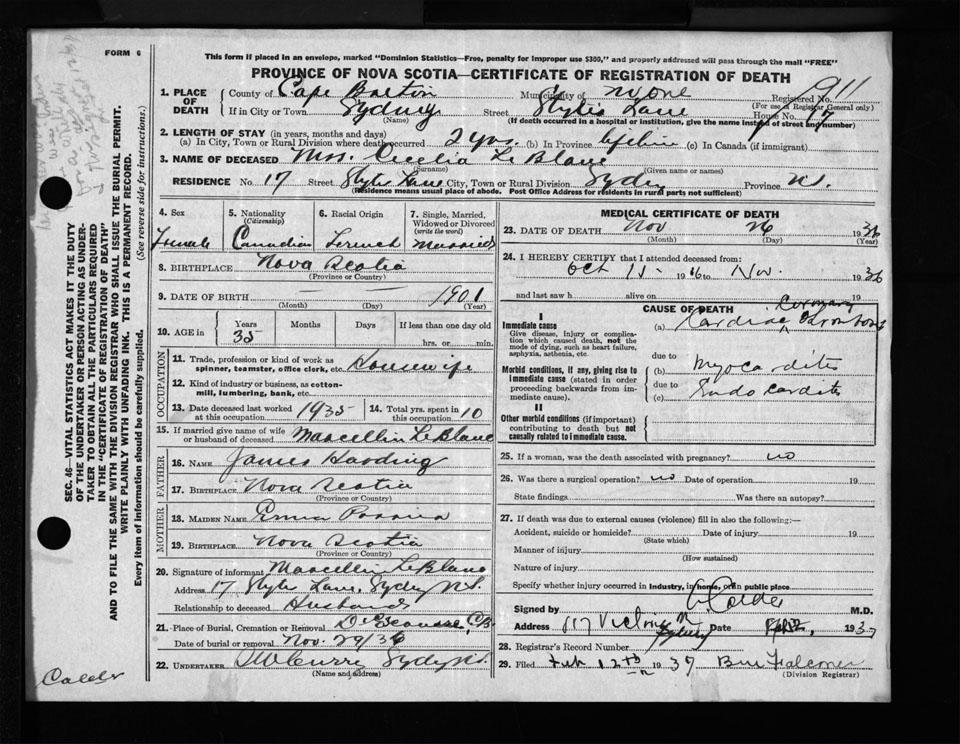 FORM 6
This form if placed in an envelope, marked "Dominion Statistics—Free, penalty for improper use $300," and properly addressed will pass through the mail "FREE"
PROVINCE OF NOVA SCOTIA—CERTIFICATE OF REGISTRATION OF DEATH
1. PLACE OF DEATH { County of Cape Breton Municipality of Registered No. 911
(For use of Registrar General only)
If in City or Town Sydney Street Lane House No. 17
(Name) (If death occurred in a hospital or institution, give the name instead of street and number)
2. LENGTH OF STAY (in years, months and days)
(a) In City, Town or Rural Division where death occurred 2 yrs. (b) In Province (c) In Canada (if immigrant)
3. NAME OF DECEASED Mrs. Cecelia LeBlanc
(Surname) (Given name or names)
RESIDENCE No. 17 Street Lane City, Town or Rural Division Sydney Province N.S.
(Residence means usual place of abode. Post Office Address for residents in rural parts not sufficient)
4. Sex Female
5. Nationality (Citizenship) Canadian
6. Racial Origin French
7. Single, Married, Widowed or Divorced (write the word) Married
8. BIRTHPLACE Nova Scotia
(Province or Country)
9. DATE OF BIRTH 1901
(Month) (Day) (Year)
10. AGE in { Years 35 Months Days If less than one day old hrs. or min.
OCCUPATION
11. Trade, profession or kind of work as spinner, teamster, office clerk, etc. Housewife
12. Kind of industry or business, as cotton-mill, lumbering, bank, etc.
13. Date deceased last worked at this occupation 1935
14. Total yrs. spent in this occupation 10
15. If married give name of wife or husband of deceased Marcellin LeBlanc
FATHER
16. NAME James Harding
17. BIRTHPLACE Nova Scotia
(Province or Country)
MOTHER
18. MAIDEN NAME
19. BIRTHPLACE Nova Scotia
(Province or Country)
20. Signature of informant Marcellin LeBlanc
Address 17 Lane, Sydney N.S.
Relationship to deceased Husband
21. Place of Burial, Cremation or Removal D'Escousse, C.B.
Date of burial or removal Nov. 29/36
22. UNDERTAKER Sydney N.S.
(Name and address)
MEDICAL CERTIFICATE OF DEATH
23. DATE OF DEATH Nov 26 1936
(Month) (Day) (Year)
24. I HEREBY CERTIFY that I attended deceased from:
Oct 15 to Nov. 1936
and last saw h alive on 19
CAUSE OF DEATH
I
Immediate cause
Give disease, injury or complication which caused death, not the mode of dying, such as heart failure, asphyxia, asthenia, etc.
(a) Cardiac Coronary Thrombosis
Morbid conditions, if any, giving rise to Immediate cause (stated in order proceeding backwards from immediate cause).
due to
(b) Myocarditis
due to
(c) Endocarditis
II
Other morbid conditions (if important) contributing to death but not causally related to Immediate cause.
25. If a woman, was the death associated with pregnancy? no
26. Was there a surgical operation? no Date of operation 19
State findings Was there an autopsy?
27. If death was due to external causes (violence) fill in also the following:—
Accident, suicide or homicide? Date of injury 19
(State which)
Manner of injury
(How sustained)
Nature of injury
Specify whether injury occurred in industry, in home, or in public place
Signed by Calder M.D.
Address 117 Victoria Sydney Date 1937
28. Registrar's Record Number
29. Filed Feb 12th 1937 Falconer
(Division Registrar)
SEC. 46—VITAL STATISTICS ACT MAKES IT THE DUTY
OF THE UNDERTAKER OR PERSON ACTING AS UNDER-
TAKER TO OBTAIN ALL THE PARTICULARS REQUIRED
IN THE "CERTIFICATE OF REGISTRATION OF DEATH"
AND TO FILE THE SAME WITH THE DIVISION REGISTRAR WHO SHALL ISSUE THE BURIAL PERMIT.
WRITE PLAINLY WITH UNFADING INK. THIS IS A PERMANENT RECORD.
Every item of information should be carefully supplied. (See reverse side for instructions.)
Calder